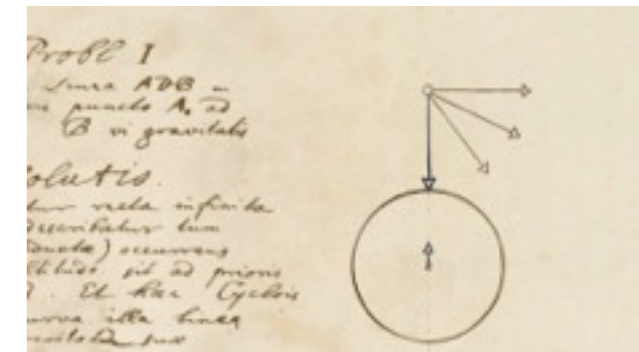 Probl I
Linea ADB
puncto A, ad
B vi gravitatis
olutio.
tur recta infinita
describatur tum
ducta) occurrens
sit ad prioris
Et hæc Cyclois
urva illa linea